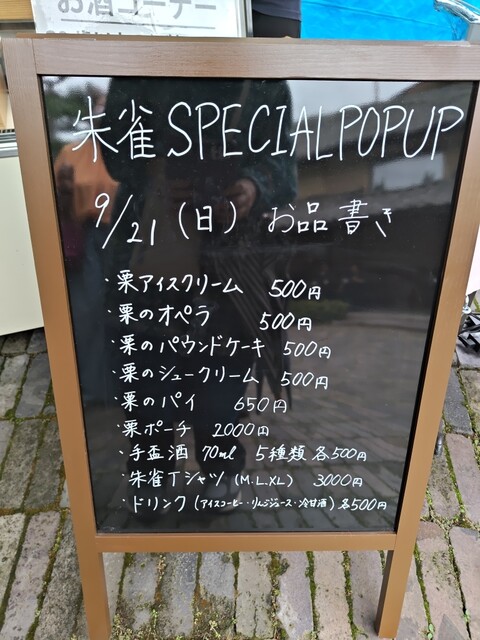 お酒コーナー
朱雀 SPECIAL POPUP
9/21(日) お品書き
・栗アイスクリーム 500円
・栗のオペラ 500円
・栗のパウンドケーキ 500円
・栗のシュークリーム 500円
・栗のパイ 650円
・栗ポーチ 2000円
・手盃酒 70ml 5種類 各500円
・朱雀Tシャツ (M.L.XL) 3000円
・ドリンク (アイスコーヒー・りんごジュース・冷甘酒) 各500円